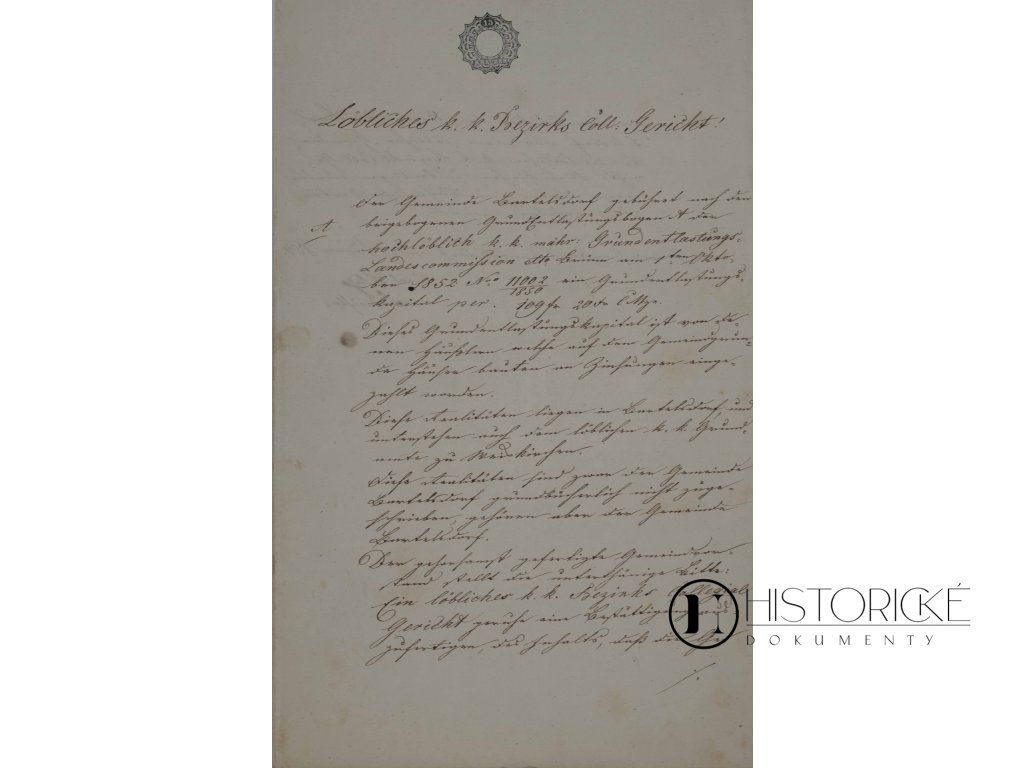 15
Löbliches k. k. Bezirks Coll: Gericht!
Der Gemeinde Bartelsdorf gebührt nach dem
A
beigebogenen GrundEntlastungsbogen A der
hochlöblich k. k. mähr: Grundentlastungs-
Landescommission dto Brünn am 1ten Okto-
ber 1852 No 11002/1850 ein Grundentlastungs-
kapital per. 109 fr 20 kr CMze.
Dieses Grundentlastungskapital ist von de-
nen Häuslern welche auf dem Gemeindgrun-
de Häuser bauten an Zinsungen einge-
zahlt worden.
Diese Realitäten liegen in Bartelsdorf und
unterstehen auch dem löblichen k. k. Grund-
amte zu Weiskirchen.
Diese Realitäten sind zwar der Gemeinde
Bartelsdorf grundbücherlich nicht zuge-
schrieben, gehören aber der Gemeinde
Bartelsdorf.
Der gehorsamst gefertigte Gemeindvor-
stand stellt die unterthänige Bitte:
Ein löbliches k. k. Bezirks
Gericht geruhe eine Bestättigung
zufertigen, des Inhalts, daß die Ge-
/.
HISTORICKÉ
DOKUMENTY